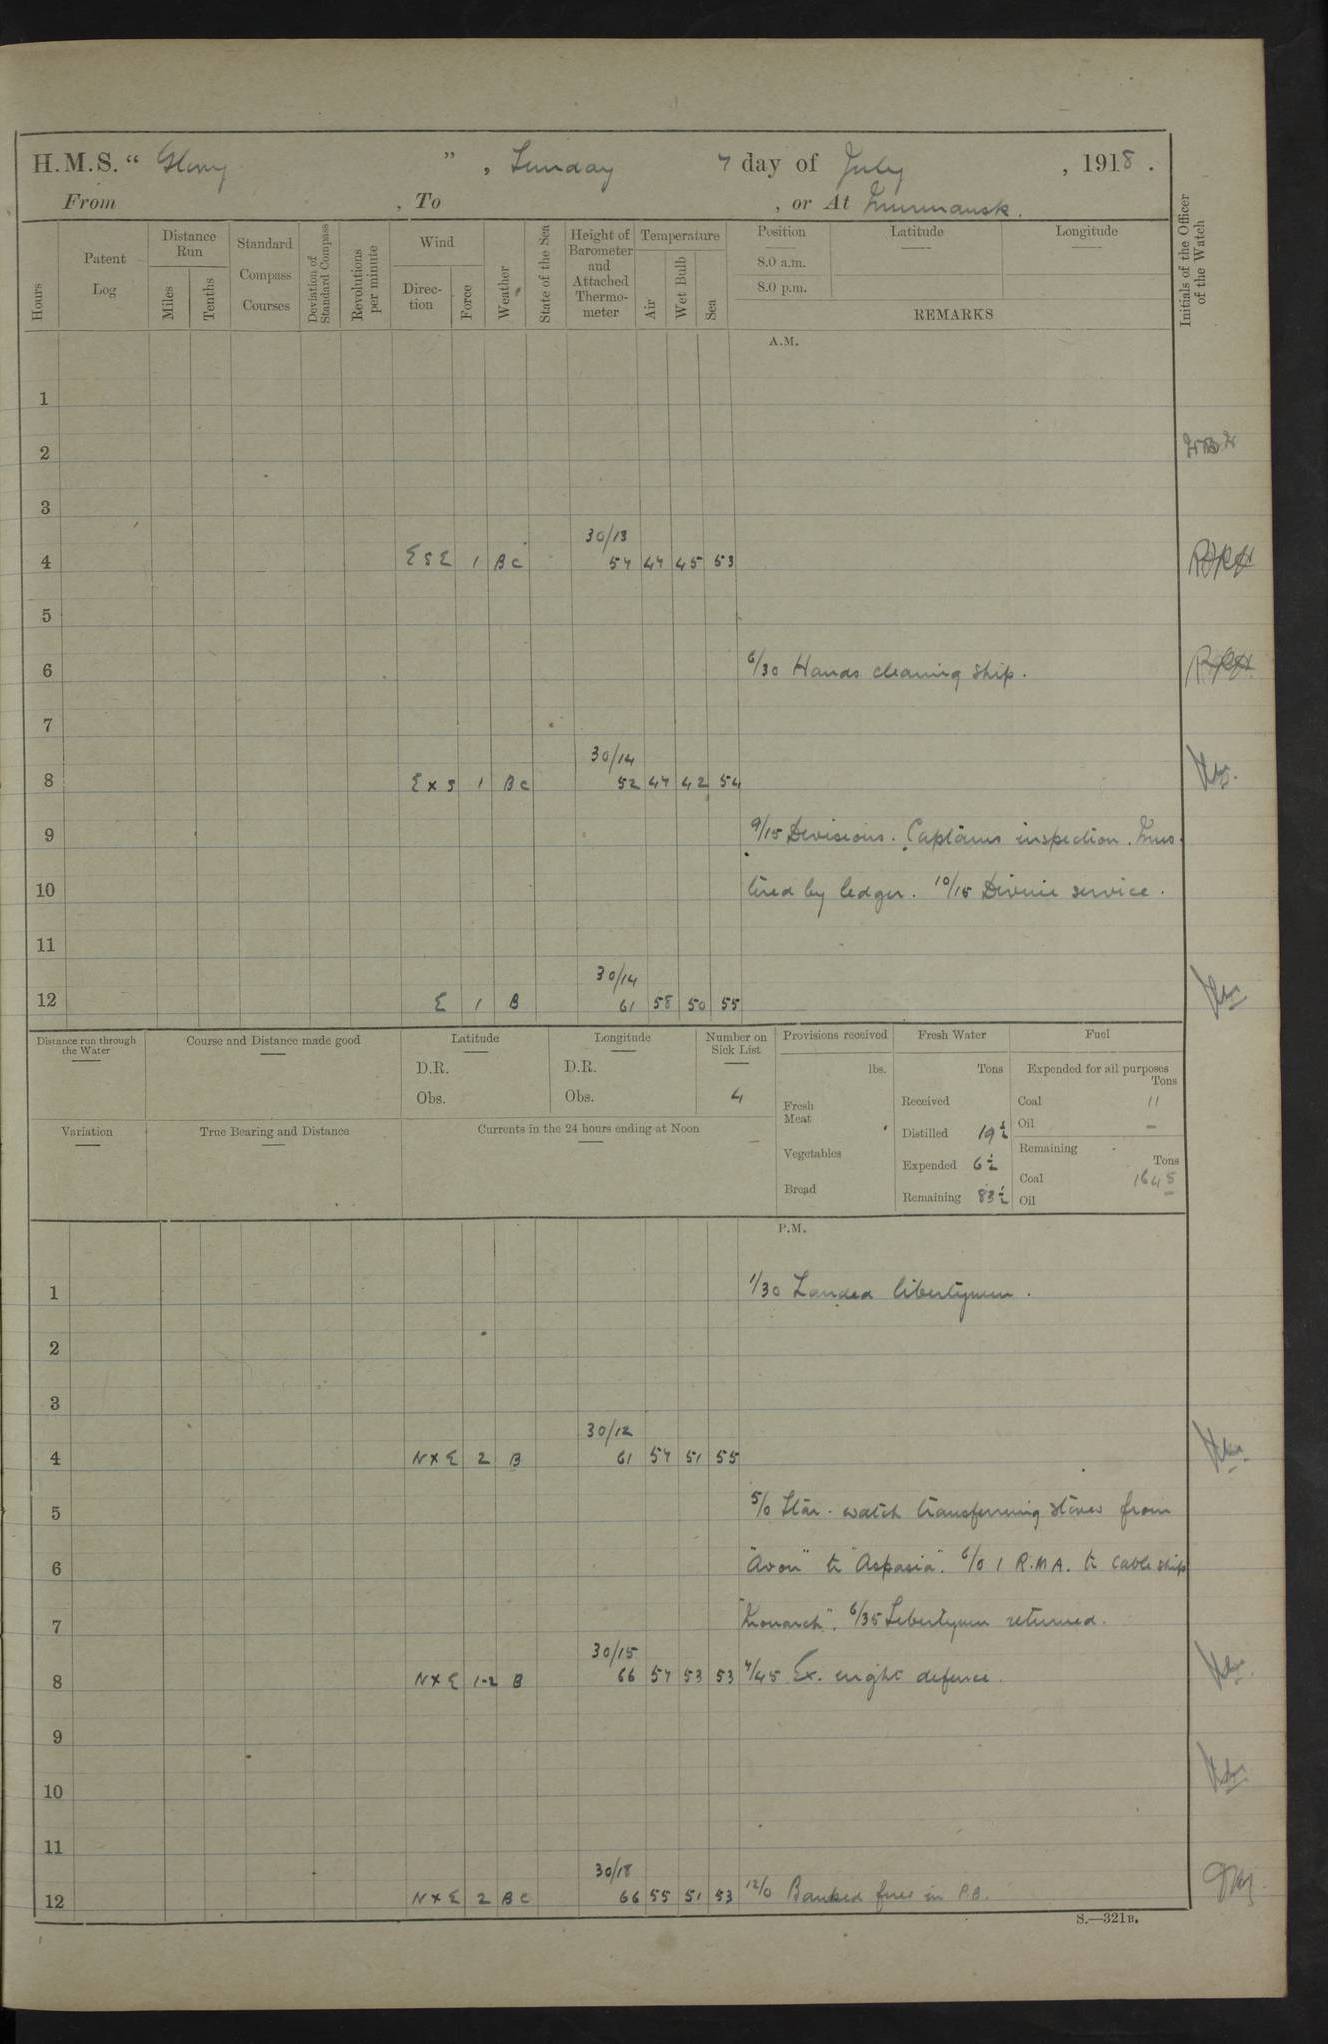 H.M.S. " Glory " , Sunday 7 day of July , 1918 .
From , To , or At Murmansk .
Hours
Patent Log
Distance Run
Miles
Tenths
Standard Compass Courses
Deviation of Standard Compass
Revolutions per minute
Wind
Direction
Force
Weather
State of the Sea
Height of Barometer and Attached Thermometer
Temperature
Air
Wet Bulb
Sea
Position
8.0 a.m.
8.0 p.m.
Latitude
Longitude
REMARKS
Initials of the Officer of the Watch
A.M.
1
2
3
30/13
4 ESE 1 BC 57 47 45 53
5
6 6/30 Hands cleaning ship.
7
30/14
8 E x S 1 BC 52 47 42 54
9 9/15 Divisions. Captains inspection. Mus-
10 tered by ledger. 10/15 Divine service.
11
30/14
12 E 1 B 61 58 50 55
Distance run through the Water
Course and Distance made good
Latitude
D.R.
Obs.
Longitude
D.R.
Obs.
Number on Sick List
4
Provisions received
lbs.
Fresh Meat
Vegetables
Bread
Fresh Water
Tons
Received
Distilled 19½
Expended 6½
Remaining 83½
Fuel
Expended for all purposes
Tons
Coal 11
Oil –
Remaining
Tons
Coal 1645
Oil –
Variation
True Bearing and Distance
Currents in the 24 hours ending at Noon
P.M.
1 1/30 Landed libertymen.
2
3
30/12
4 N x E 2 B 61 57 51 55
5 5/0 Star. watch transferring stores from
6 "Avon" to "Aspasia". 6/0 1 R.M.A. to cable ship
7 "Monarch". 6/35 Libertymen returned.
30/15
8 N x E 1-2 B 66 57 53 53 7/45 Ex. night defence.
9
10
11
30/18
12 N x E 2 BC 66 55 51 53 12/0 Banked fires in P.B.
S.—321B.